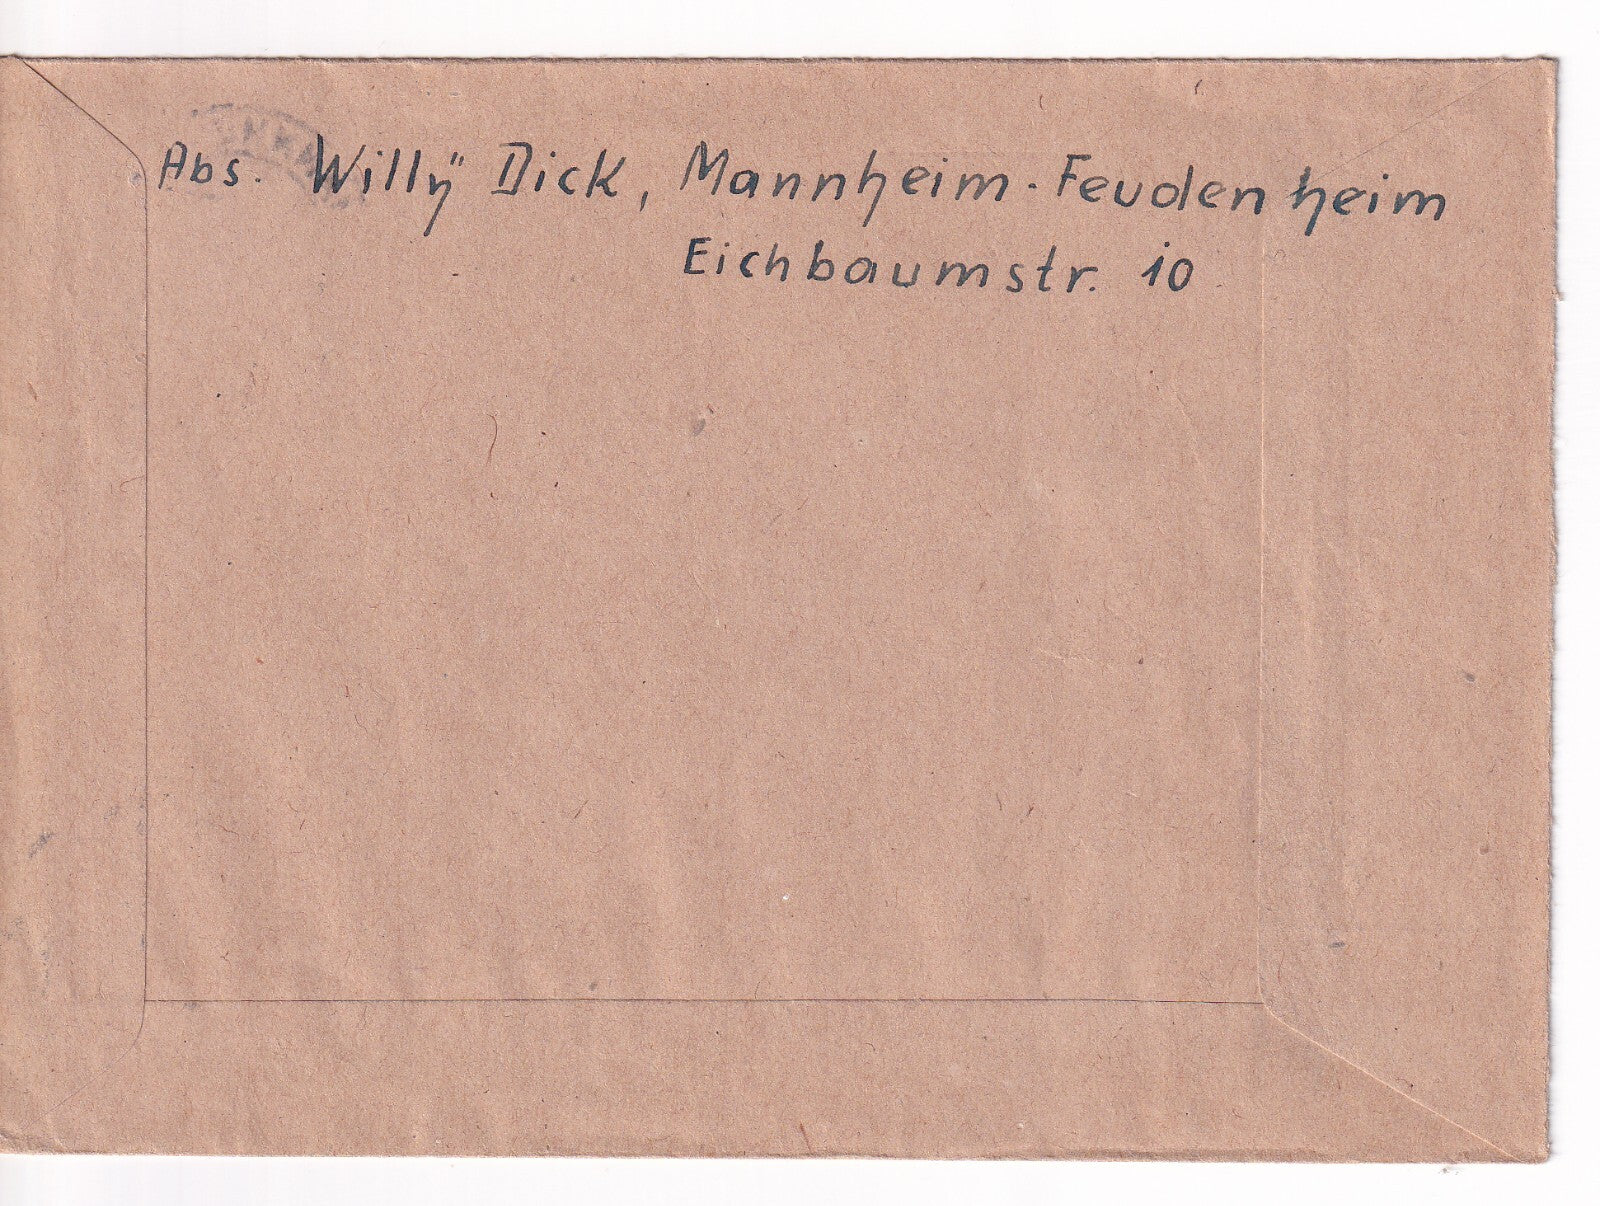 Abs. Willÿ Dick, Mannheim-Feudenheim
Eichbaumstr. 10